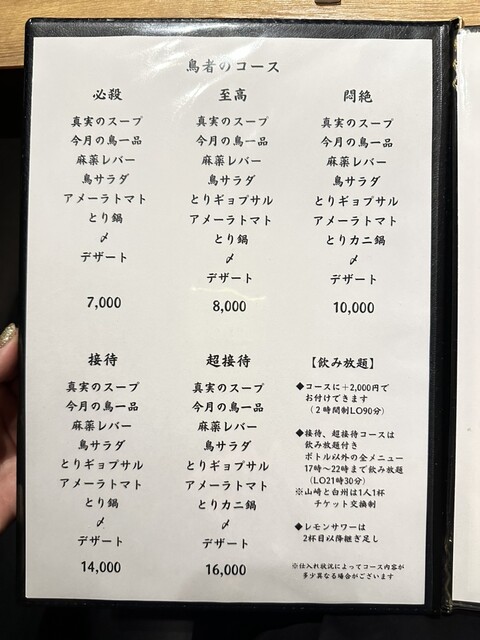 鳥者のコース
必殺
真実のスープ
今月の鳥一品
麻薬レバー
鳥サラダ
アメーラトマト
とり鍋
〆
デザート
7,000
至高
真実のスープ
今月の鳥一品
麻薬レバー
鳥サラダ
とりギョプサル
アメーラトマト
とり鍋
〆
デザート
8,000
悶絶
真実のスープ
今月の鳥一品
麻薬レバー
鳥サラダ
とりギョプサル
アメーラトマト
とりカニ鍋
〆
デザート
10,000
接待
真実のスープ
今月の鳥一品
麻薬レバー
鳥サラダ
とりギョプサル
アメーラトマト
とり鍋
〆
デザート
14,000
超接待
真実のスープ
今月の鳥一品
麻薬レバー
鳥サラダ
とりギョプサル
アメーラトマト
とりカニ鍋
〆
デザート
16,000
【飲み放題】
◆コースに＋2,000円で
お付けできます
（２時間制LO90分）
◆接待、超接待コースは
飲み放題付き
ボトル以外の全メニュー
17時〜22時まで飲み放題
（LO21時30分）
※山崎と白州は1人1杯
チケット交換制
◆レモンサワーは
2杯目以降継ぎ足し
※仕入れ状況によってコース内容が
多少異なる場合がございます